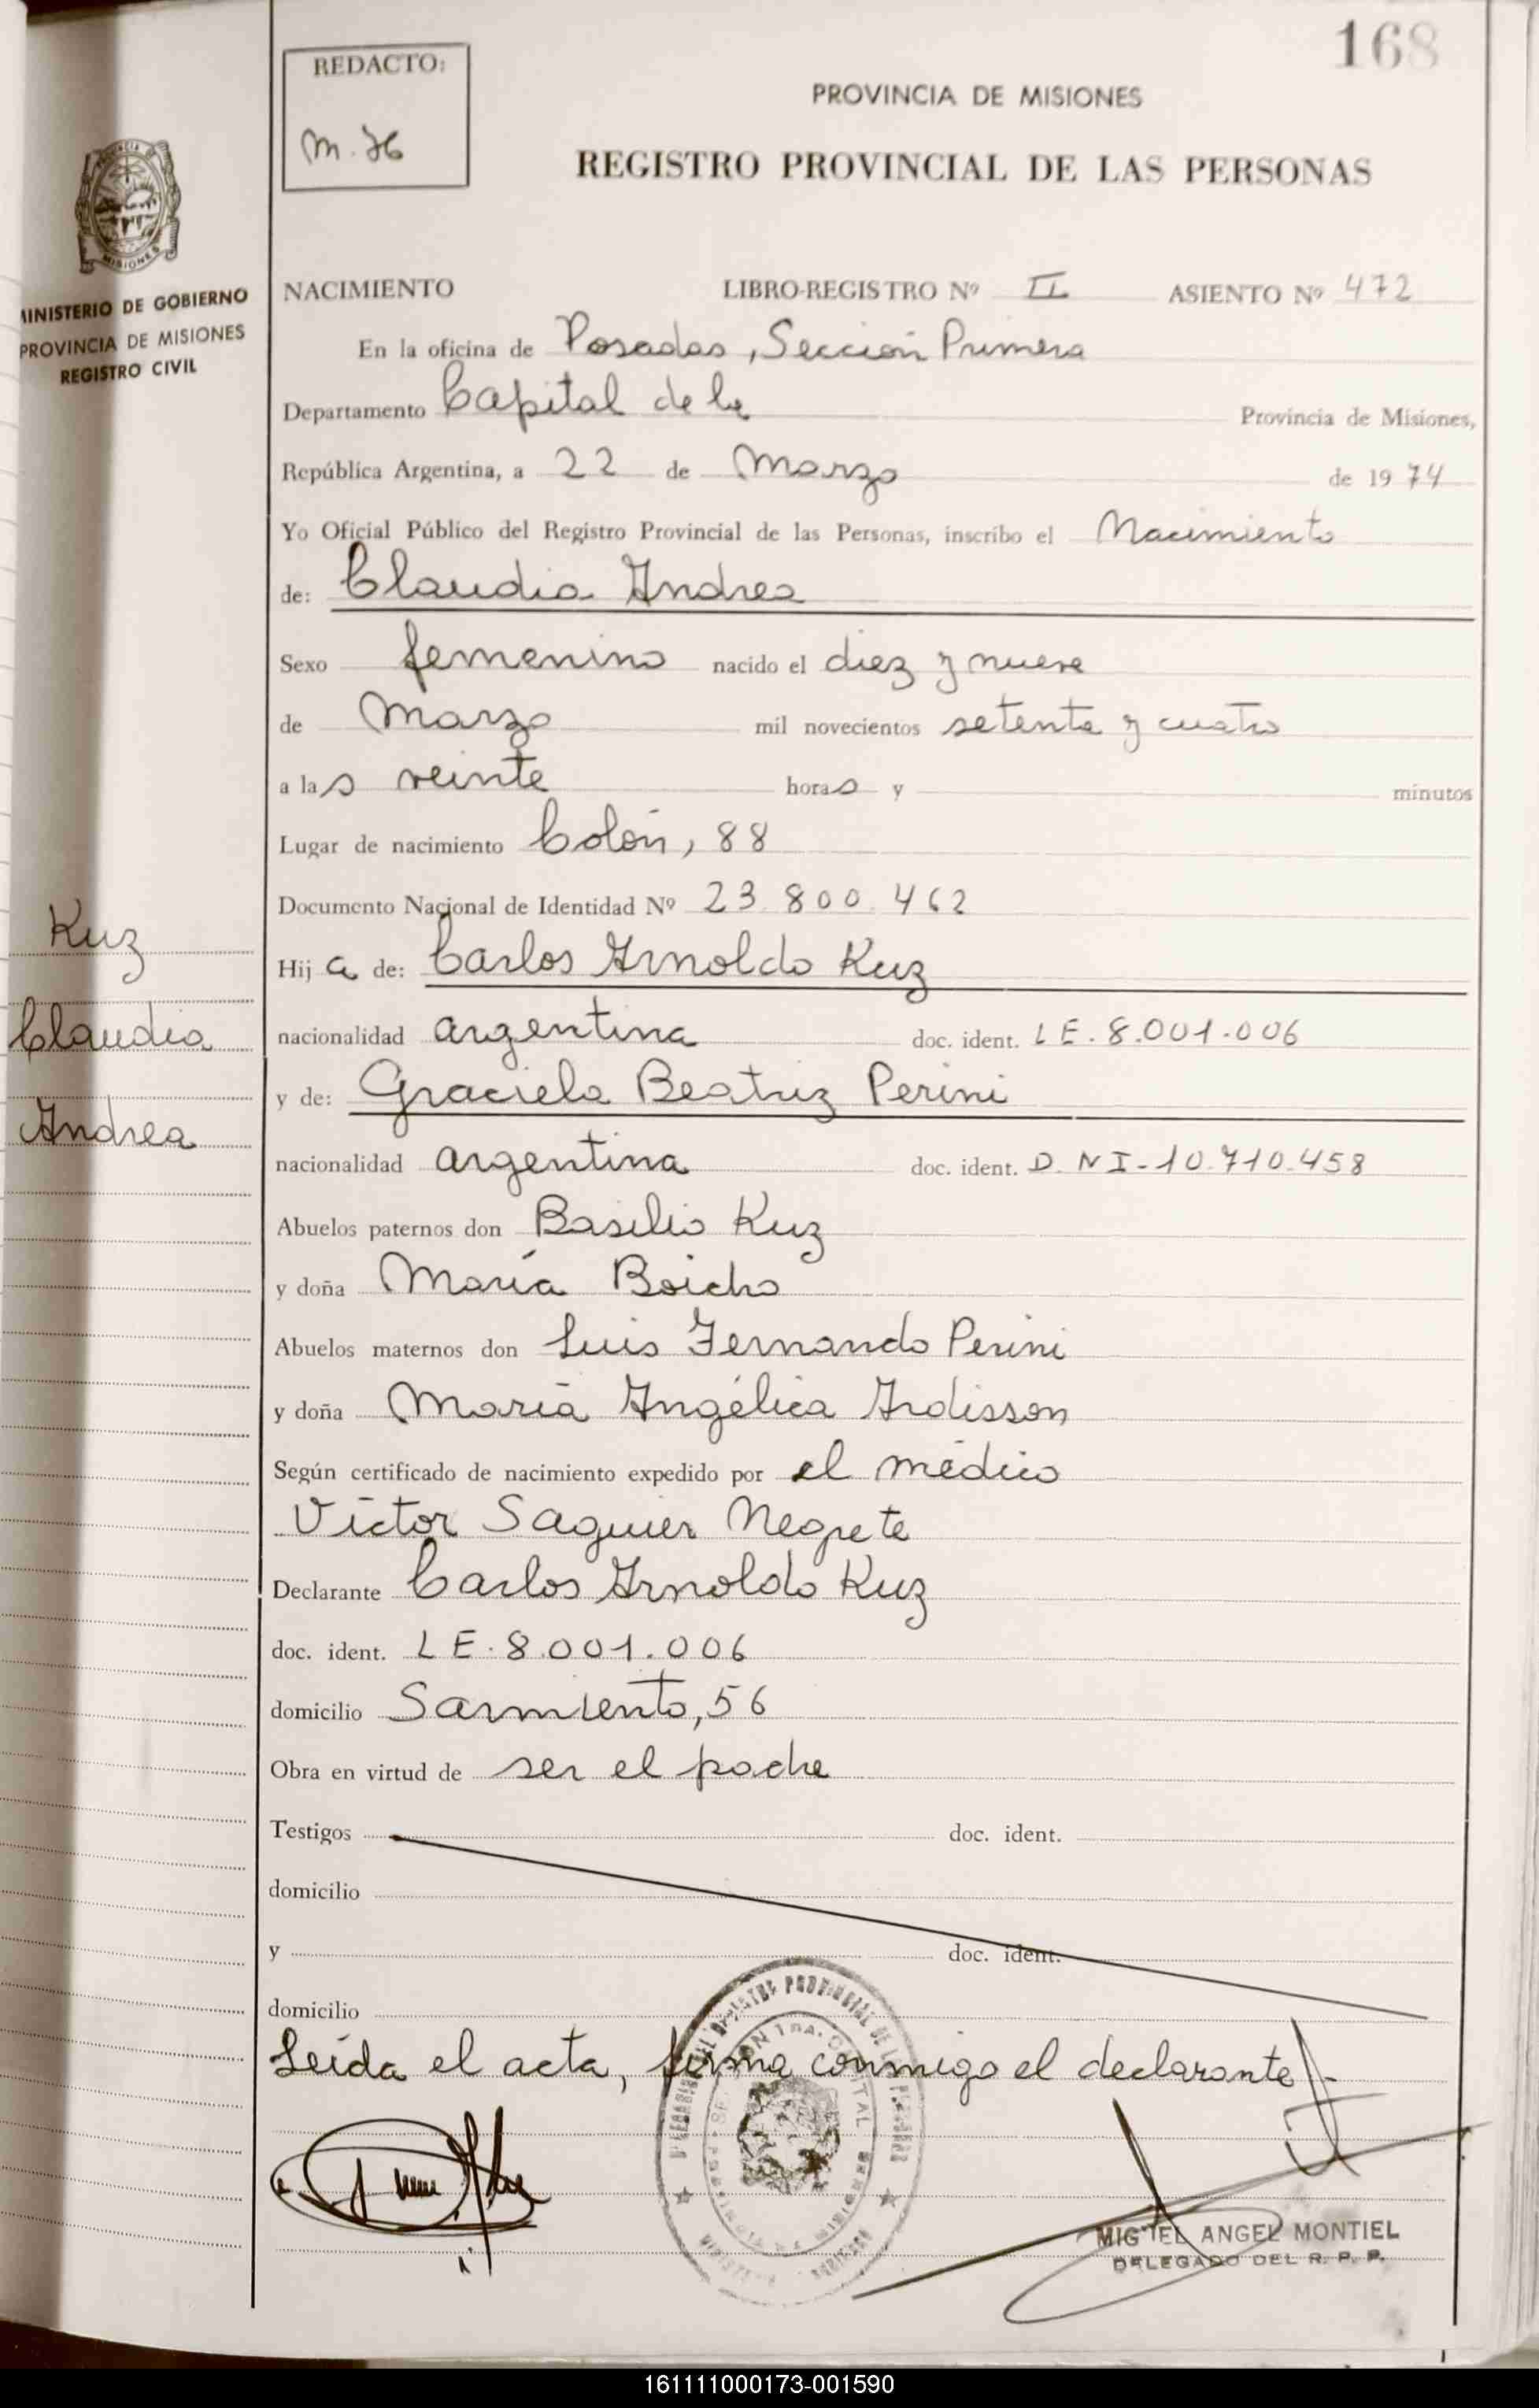 168
REDACTO:
PROVINCIA DE MISIONES
REGISTRO PROVINCIAL DE LAS PERSONAS
MISIONES
MINISTERIO DE GOBIERNO
PROVINCIA DE MISIONES
REGISTRO CIVIL
NACIMIENTO LIBRO-REGISTRO Nº II ASIENTO Nº 472
En la oficina de Posadas, Sección Primera
Departamento Capital de la Provincia de Misiones,
República Argentina, a 22 de Marzo de 1974
Yo Oficial Público del Registro Provincial de las Personas, inscribo el Nacimiento
de: Claudia Andrea
Sexo femenino nacido el diez y nueve
de Marzo mil novecientos setenta y cuatro
a las veinte horas y minutos
Lugar de nacimiento Colón, 88
Documento Nacional de Identidad Nº 23.800.462
Kuz
Claudia
Andrea
Hija de: Carlos Arnoldo Kuz
nacionalidad argentina doc. ident. LE. 8.001.006
y de: Graciela Beatriz Perini
nacionalidad argentina doc. ident. D.N.I-10.710.458
Abuelos paternos don Basilio Kuz
y doña María Boicho
Abuelos maternos don Luis Fernando Perini
y doña María Angélica Ardisson
Según certificado de nacimiento expedido por el médico
Víctor Saguier Negrete
Declarante Carlos Arnoldo Kuz
doc. ident. LE. 8.001.006
domicilio Sarmiento, 56
Obra en virtud de ser el padre
Testigos doc. ident.
domicilio
y doc. ident.
domicilio
Leída el acta, firma conmigo el declarante.-
MIGUEL ANGEL MONTIEL
DELEGADO DEL R. P. P.
161111000173-001590